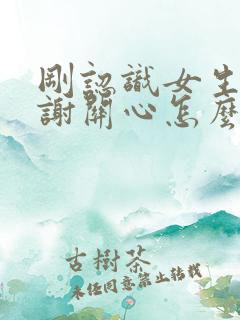 剛認識女生
謝關心怎麼
古樹茶
未经同意禁止转载